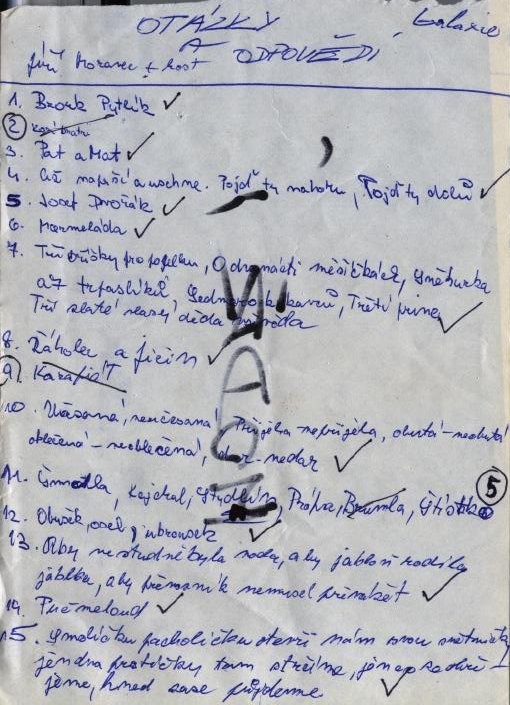 OTÁZKY
A ODPOVĚDI
Galaxie
Jiří Moravec + host
1. Brouk Pytlík ✓
2
3. Pat a Mat ✓
4. Až naprší a uschne. Pojď ty nahoru, Pojď ty dolů ✓
5. Josef Dvořák ✓
6. Marmeláda ✓
7. Tři oříšky pro popelku, O dvanácti měsíčkách, Sněhurka
a 7 trpaslíků, Sedmero krkavců, Třetí princ
Tři zlaté vlasy děda vševěda ✓
8. Řáholec a Jičín ✓
9. Karafiát
10. Učesaná, neučesaná, Přijela nepřijela, obutá-neobutá
oblečená-neoblečená, dar-nedar ✓
11. Šmudla, Kejchal, Stydlín, Prófa, Brumla, Štístko 5
12. Obušek, osel, ubrousek ✓
13. Aby ve studni byla voda, aby jabloň rodila
jablka, aby převozník nemusel převážet ✓
14. Pučmeloud ✓
15. Smolíčku pacholíčku otevři nám svou světničku
jen dva prstíčky tam strčíme, jen co se ohře-
jeme, hned zase půjdeme ✓
HODSI